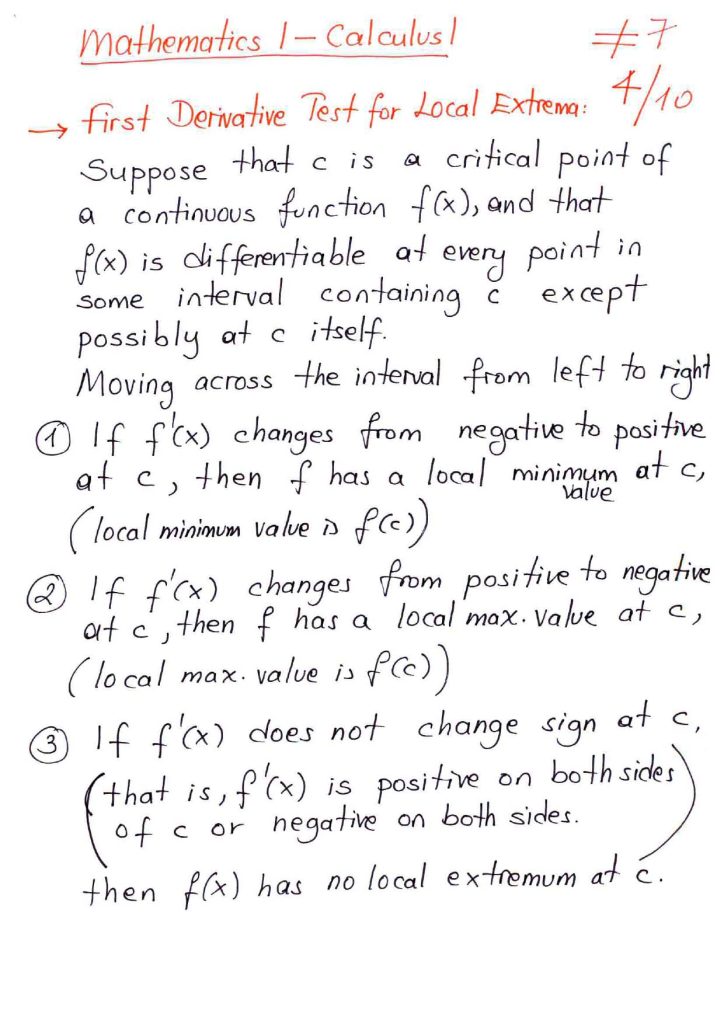 Mathematics 1 – Calculus 1 #7
→ First Derivative Test for Local Extrema: 4/10
Suppose that c is a critical point of
a continuous function f(x), and that
f(x) is differentiable at every point in
some interval containing c except
possibly at c itself.
Moving across the interval from left to right
① If f'(x) changes from negative to positive
at c, then f has a local minimum at c,
value
(local minimum value is f(c))
② If f'(x) changes from positive to negative
at c, then f has a local max. value at c,
(local max. value is f(c))
③ If f'(x) does not change sign at c,
(that is, f'(x) is positive on both sides
of c or negative on both sides.)
then f(x) has no local extremum at c.